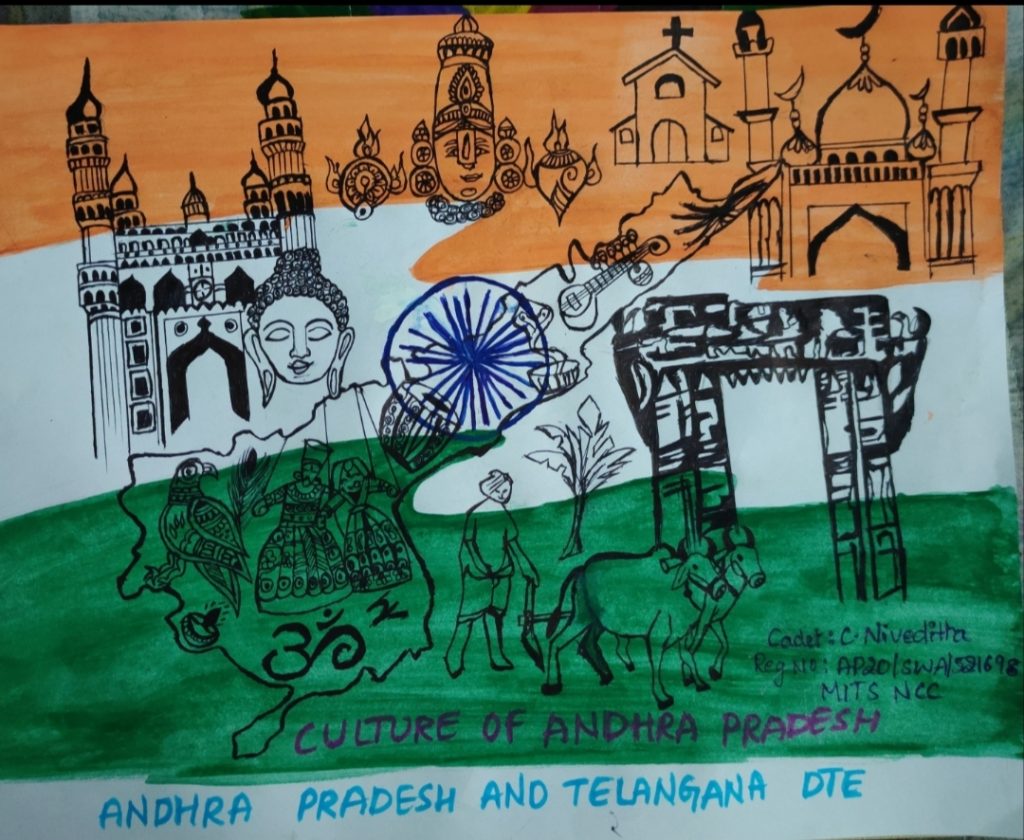 ॐ
Cadet: C. Niveditha
Reg No: AP20/SWA/581698
MITS NCC
CULTURE OF ANDHRA PRADESH
ANDHRA PRADESH AND TELANGANA DTE